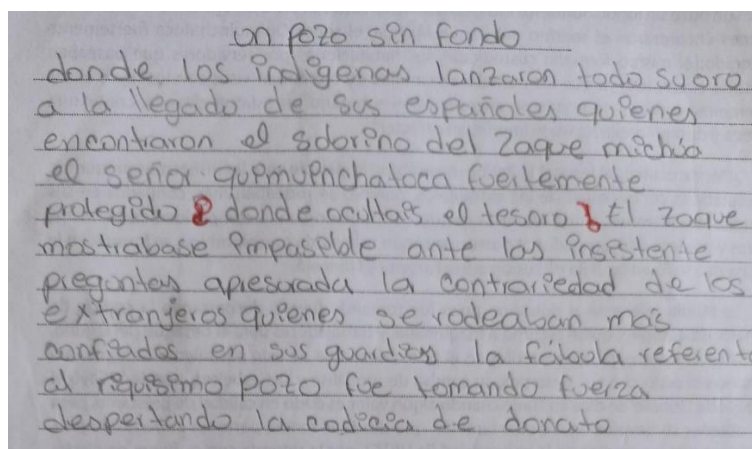 un pozo sin fondo
donde los indigenas lanzaron todo su oro
a la llegado de sus españoles quienes
encontraron el sdorino del Zaque michúa
el señor quemuenchatoca fuertemente
prolegido ¿ donde ocultais el tesoro? El zaque
mostrabase impasible ante las insistente
preguntas apresorada la contrariedad de los
extranjeros quienes se rodeaban mas
confiados en sus guardias la fábula referente
al riquisimo pozo fue tomando fuerza
despertando la codicia de donato